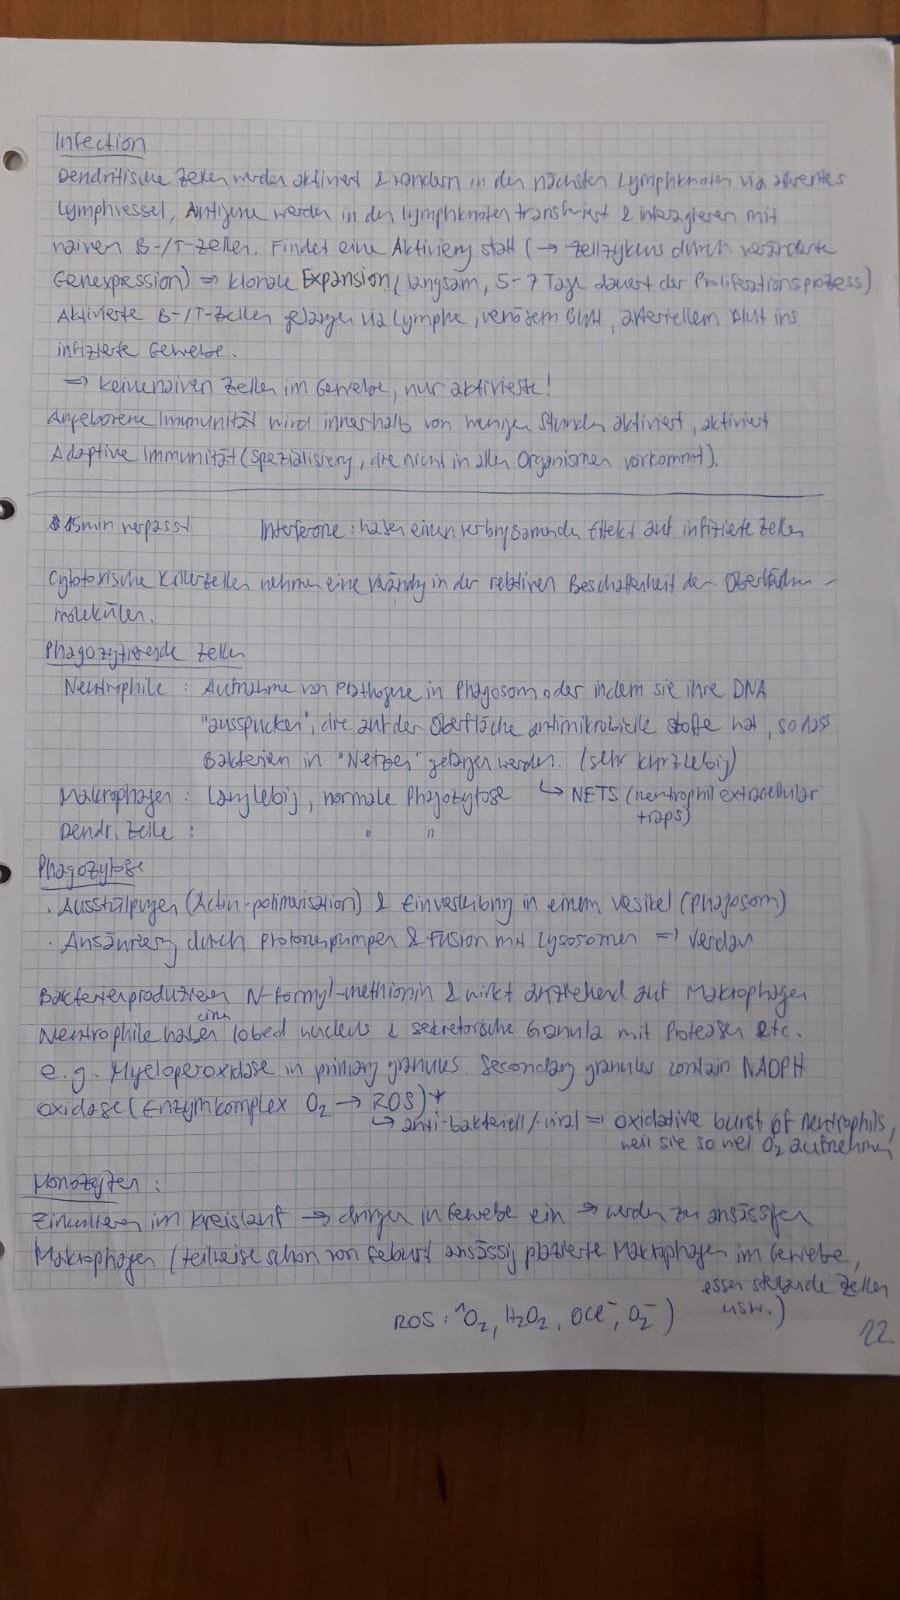 Infection
Dendritische Zellen werden aktiviert & wandern in den nächsten Lymphknoten via afferentes
Lymphvessel, Antigene werden in den Lymphknoten transferiert & interagieren mit
naiven B-/T-Zellen. Findet eine Aktivierung statt (→ Zellzyklus durch veränderte
Genexpression) ⇒ klonale Expansion (langsam, 5-7 Tage dauert der Proliferationsprozess)
Aktivierte B-/T-Zellen gelangen via Lymphe, venösem Blut, arteriellem Blut ins
infizierte Gewebe.
⇒ keine naiven Zellen im Gewebe, nur aktivierte!
Angeborene Immunität wird innerhalb von wenigen Stunden aktiviert, aktiviert
Adaptive Immunität (Spezialisierung, die nicht in allen Organismen vorkommt).
15min verpasst Interferone: haben einen verlangsamende Effekt auf infizierte Zellen
Cytotoxische Killerzellen nehmen eine in der relativen Beschaffenheit der Oberflächen-
molekülen.
Phagozytierende Zellen
Neutrophile : Aufnahme von Pathogene in Phagosom oder indem sie ihre DNA
"ausspucken", die auf der Oberfläche antimikrobielle Stoffe hat, sodass
Bakterien in "Netzen" gefangen werden. (sehr kurzlebig)
Makrophagen : langlebig, normale Phagozytose ↳ NETS (neutrophil extracellular
traps)
Dendr. Zelle : " "
Phagozytose
· Ausstülpungen (Actin-polimerisation) & Einverleibung in einem Vesikel (Phagosom)
· Ansäuerung durch Protonenpumpen & Fusion mit Lysosomen ⇒ Verdau
Bakterien produzieren N-formyl-methionin & wirkt anziehend auf Makrophagen
Neutrophile haben einen lobed nucleus & sekretorische Granula mit Proteasen etc.
e.g. Myeloperoxidase in primary granules. Secondary granules contain NADPH
oxidase (Enzymkomplex O₂ → ROS)*
↳ anti-bakteriell/-viral ⇒ oxidative burst of neutrophils,
weil sie so viel O₂ aufnehmen
Monozyten :
Zirkulieren im Kreislauf → dringen in Gewebe ein → werden zu ansässigen
Makrophagen (teilweise schon von Geburt ansässig platzierte Makrophagen im Gewebe,
essen sterbende Zellen
usw.)
ROS: ¹O₂, H₂O₂, OCl⁻, O₂⁻)
22